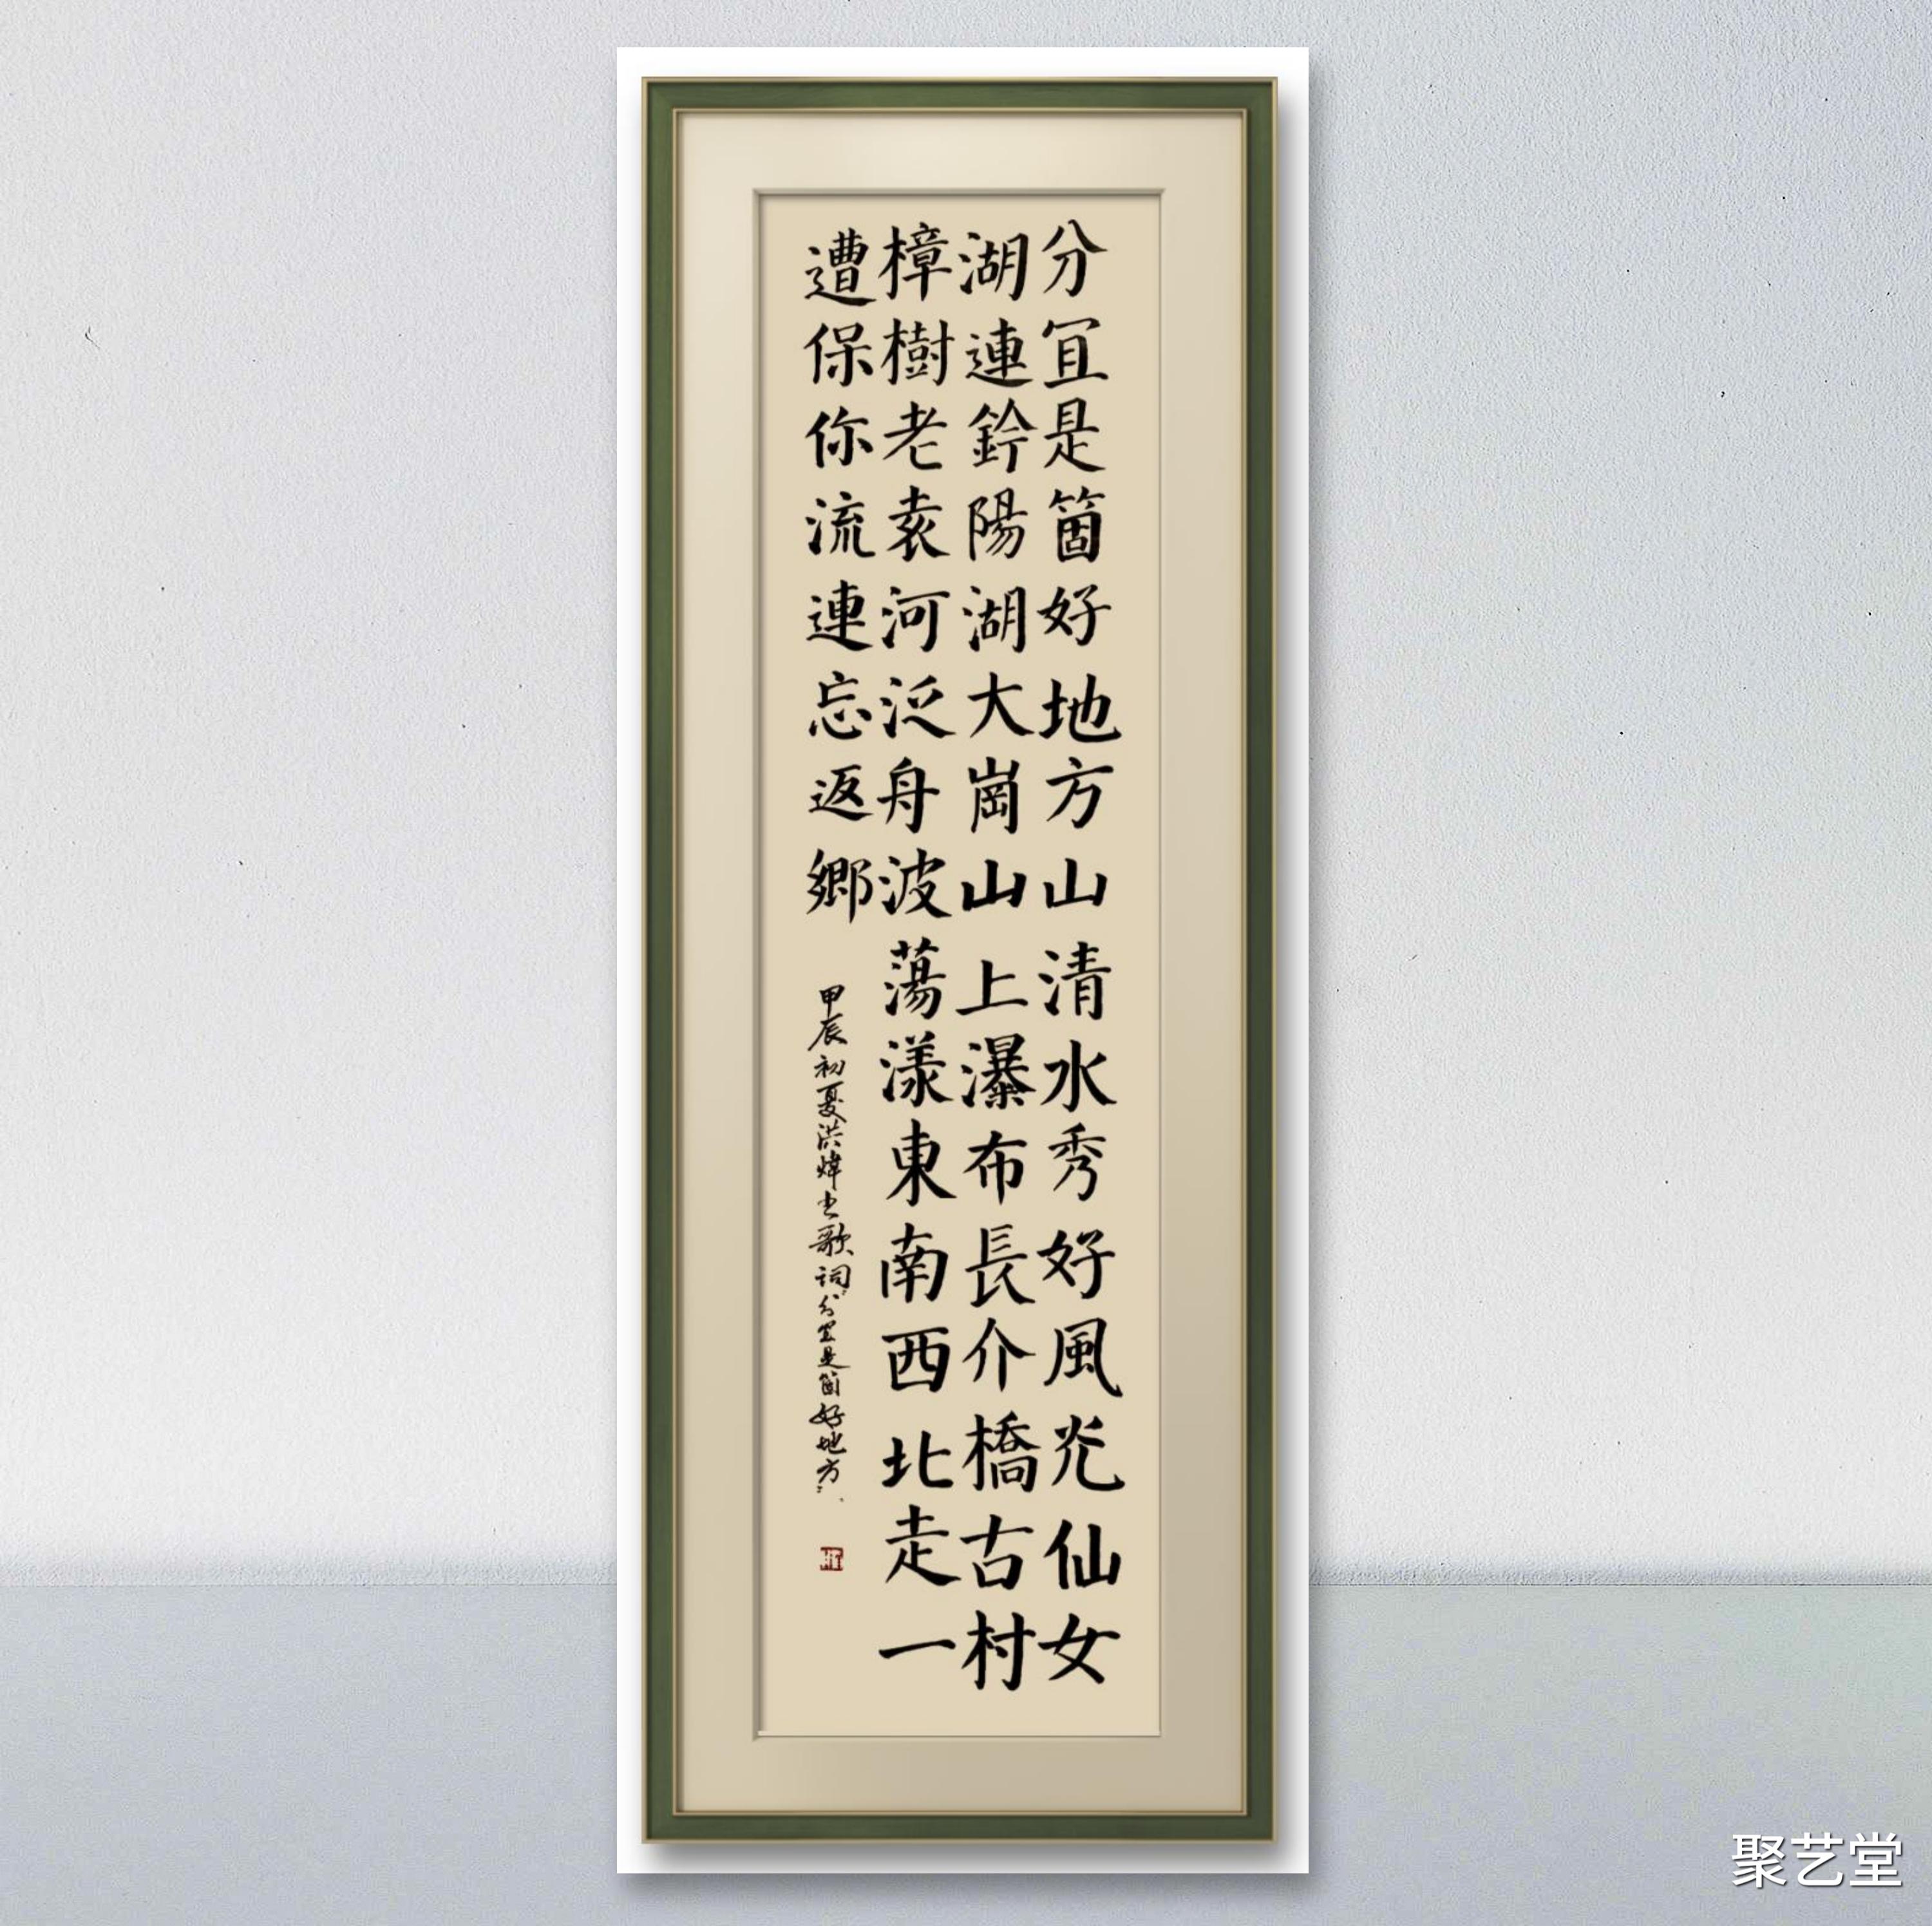 分宜是箇好地方山清水秀好風光仙女
湖連鈐陽湖大崗山上瀑布長介橋古村
樟樹老袁河泛舟波蕩漾東南西北走一
遭保你流連忘返鄉
甲辰初夏洪煒书歌詞分宜是箇好地方
聚艺堂